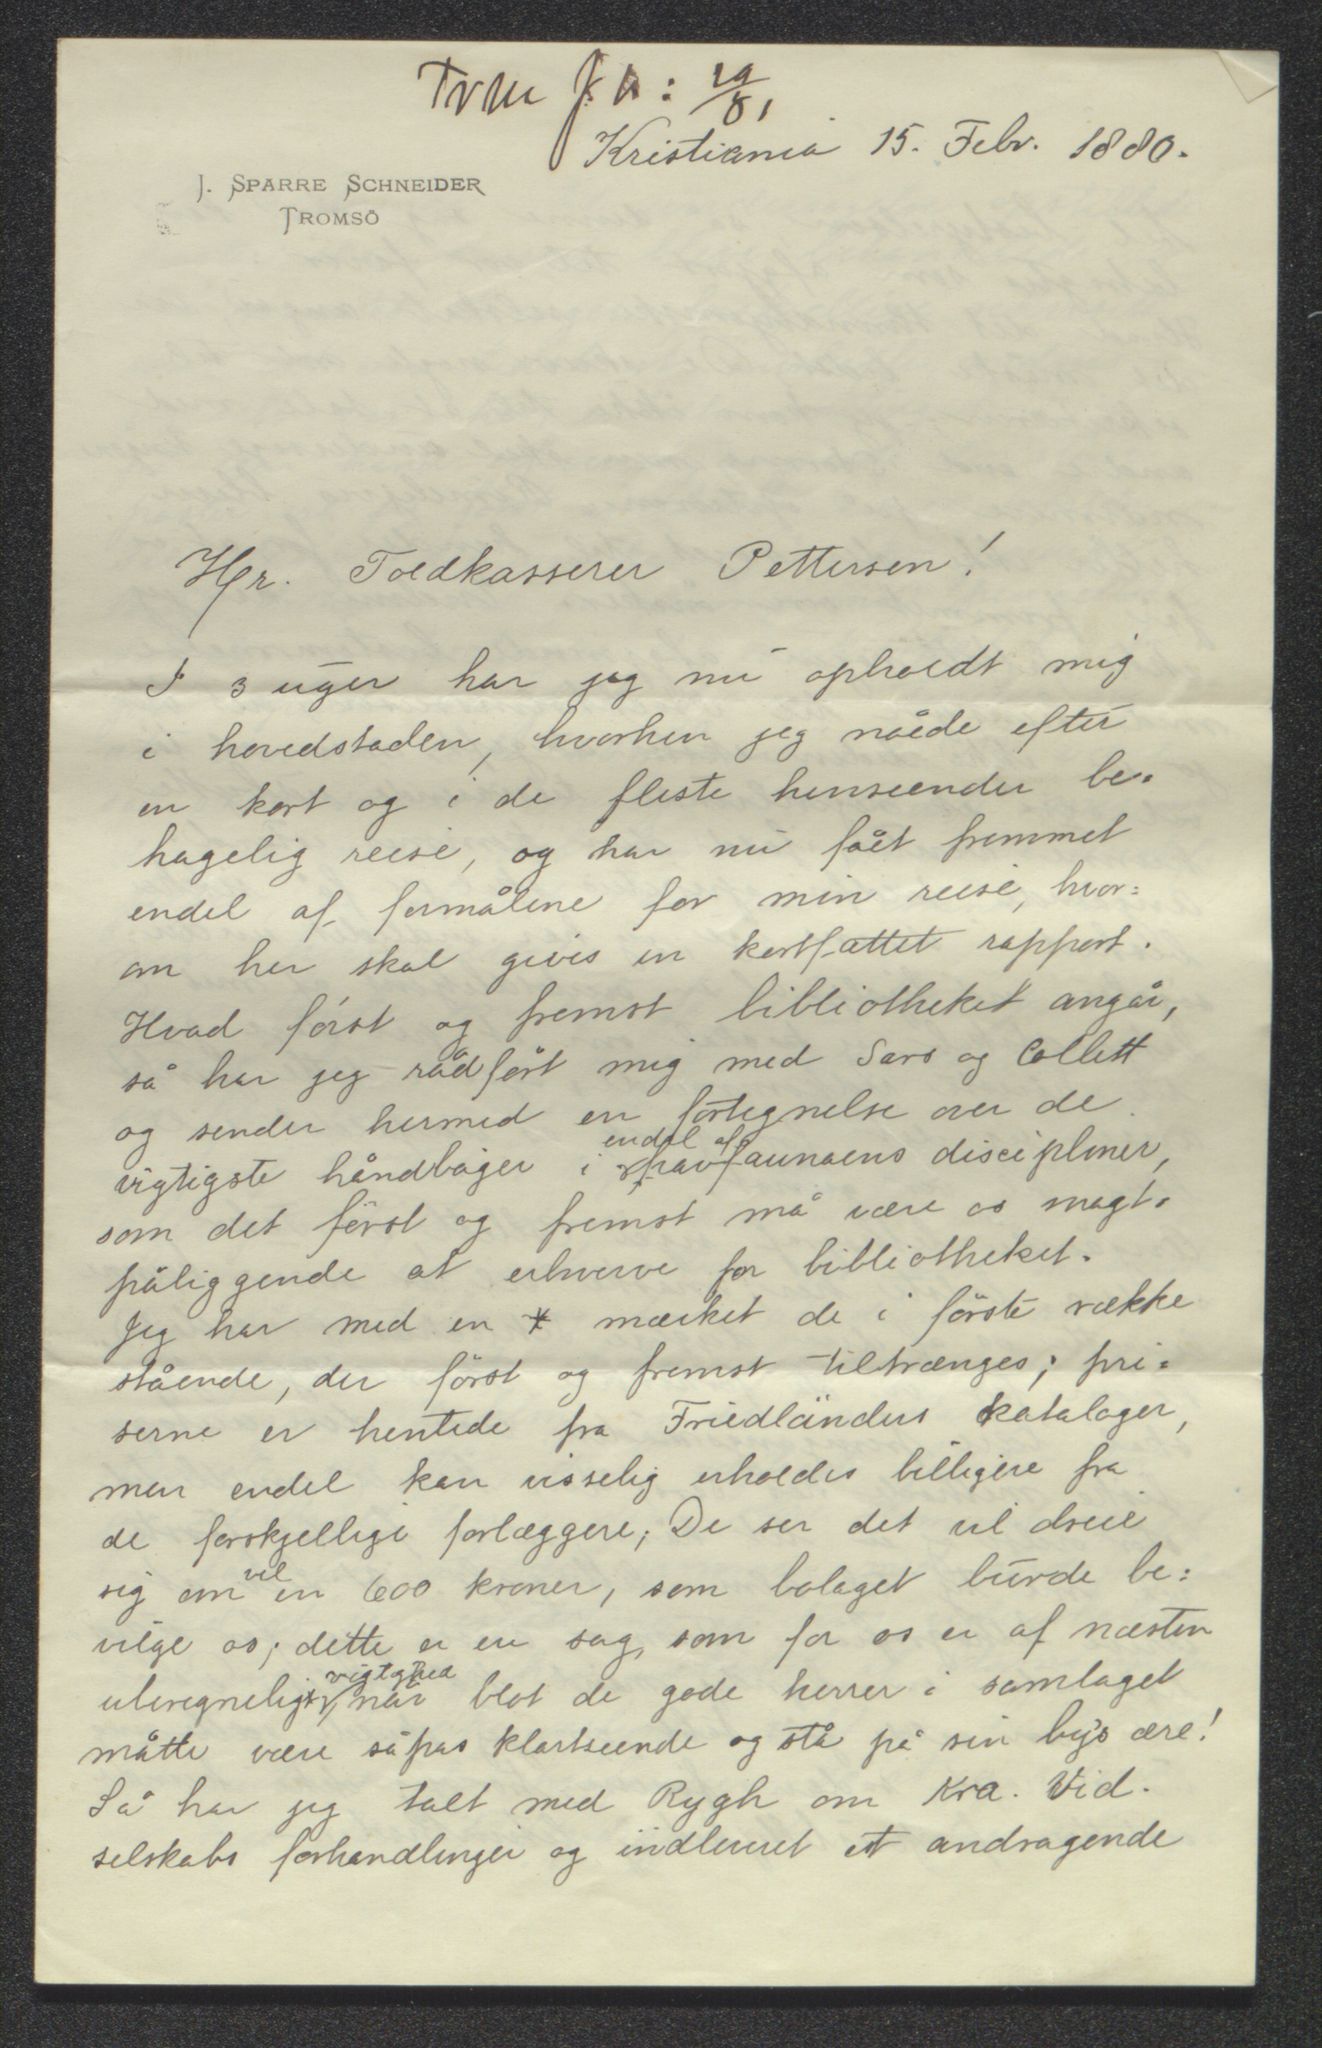 Trm J.N: 19/81
Kristiania 15. Febr. 1880.
J. SPARRE SCHNEIDER
TROMSÖ
Hr. Toldkasserer Pettersen!
I 3 uger har jeg nu opholdt mig
i hovedstaden, hvorhen jeg nåede efter
en kort og i de fleste henseender be-
hagelig reise, og har nu fået fremmet
endel af formålene for min reise, hvor-
om her skal gives en kortfattet rapport.
Hvad först og fremst bibliotheket angår,
så har jeg rådfört mig med Sars og Collett
og sender hermed en fortegnelse over de
vigtigste håndböger i endel af havfaunaens discipliner,
som det först og fremst må være os magt-
påliggende at erhverve for bibliotheket.
Jeg har med en * mærket de i förste række
stående, der först og fremst tiltrænges; pri-
serne er hentede fra Friedländers kataloger,
men endel kan visselig erholdes billigere fra
de forskjellige forlæggere; De ser det vil dreie
sig om vel en 600 kroner, som bolaget burde be-
vilge os; dette er en sag, som for os er af næsten
uberegnelig vigtighed, når blot de gode herrer i samlaget
måtte være såpas klartseende og stå på sin bys ære!
Så har jeg talt med Rygh om Kra. Vid.
selskabs forhandlinger og indleveret et andragende